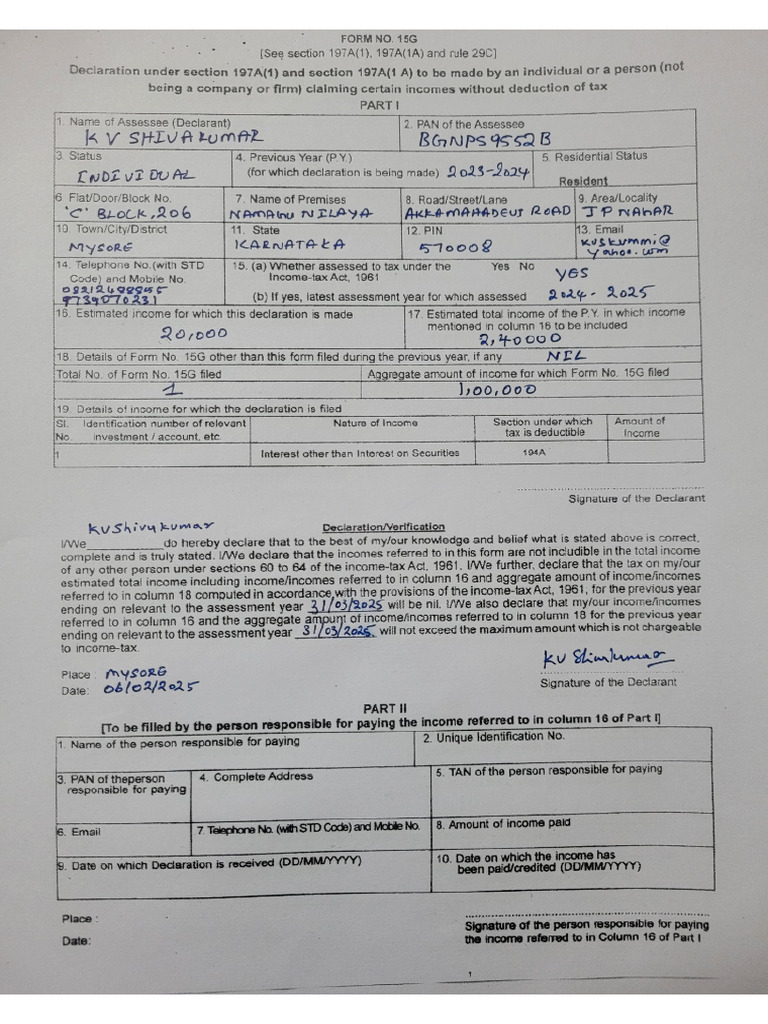 FORM NO. 15G
[See section 197A(1), 197A(1A) and rule 29C]
Declaration under section 197A(1) and section 197A(1 A) to be made by an individual or a person (not
being a company or firm) claiming certain incomes without deduction of tax
PART I
1. Name of Assessee (Declarant)
K V SHIVAKUMAR
2. PAN of the Assessee
BGNPS9552B
3. Status
INDIVIDUAL
4. Previous Year (P.Y.)
(for which declaration is being made) 2023-2024
5. Residential Status
Resident
6 Flat/Door/Block No.
'C' BLOCK, 206
7. Name of Premises
NAMAGU NILAYA
8. Road/Street/Lane
AKKAMAHADEVI ROAD
9. Area/Locality
J P NAGAR
10. Town/City/District
MYSORE
11. State
KARNATAKA
12. PIN
570008
13. Email
kvskummi@
yahoo.com
14. Telephone No.(with STD
Code) and Mobile No.
9739070231
15. (a) Whether assessed to tax under the Yes No
Income-tax Act, 1961
YES
(b) If yes, latest assessment year for which assessed 2024-2025
16. Estimated income for which this declaration is made
20,000
17. Estimated total income of the P.Y. in which income
mentioned in column 16 to be included
2,40000
18. Details of Form No. 15G other than this form filed during the previous year, if any NIL
Total No. of Form No. 15G filed
1
Aggregate amount of income for which Form No. 15G filed
1,00,000
19. Details of income for which the declaration is filed
Sl. No.
Identification number of relevant
investment / account, etc.
Nature of Income
Section under which
tax is deductible
Amount of
Income
1
Interest other than Interest on Securities
194A
Signature of the Declarant
Declaration/Verification
I/We KV Shivakumar do hereby declare that to the best of my/our knowledge and belief what is stated above is correct,
complete and is truly stated. I/We declare that the incomes referred to in this form are not includible in the total income
of any other person under sections 60 to 64 of the income-tax Act. 1961. I/We further, declare that the tax on my/our
estimated total income including income/incomes referred to in column 16 and aggregate amount of income/incomes
referred to in column 18 computed in accordance with the provisions of the income-tax Act, 1961, for the previous year
ending on relevant to the assessment year 31/03/2025 will be nil. I/We also declare that my/our income/incomes
referred to in column 16 and the aggregate amount of income/incomes referred to in column 18 for the previous year
ending on relevant to the assessment year 31/03/2025 will not exceed the maximum amount which is not chargeable
to income-tax.
Place : MYSORE
Date: 06/02/2025
KV Shivakumar
Signature of the Declarant
PART II
[To be filled by the person responsible for paying the income referred to in column 16 of Part I]
1. Name of the person responsible for paying
2. Unique Identification No.
3. PAN of theperson
responsible for paying
4. Complete Address
5. TAN of the person responsible for paying
6. Email
7. Telephone No. (with STD Code) and Mobile No.
8. Amount of income paid
9. Date on which Declaration is received (DD/MM/YYYY)
10. Date on which the income has
been paid/credited (DD/MM/YYYY)
Place :
Date:
Signature of the person responsible for paying
the income referred to in Column 16 of Part I
1